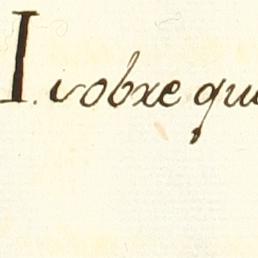 I. sobre qui